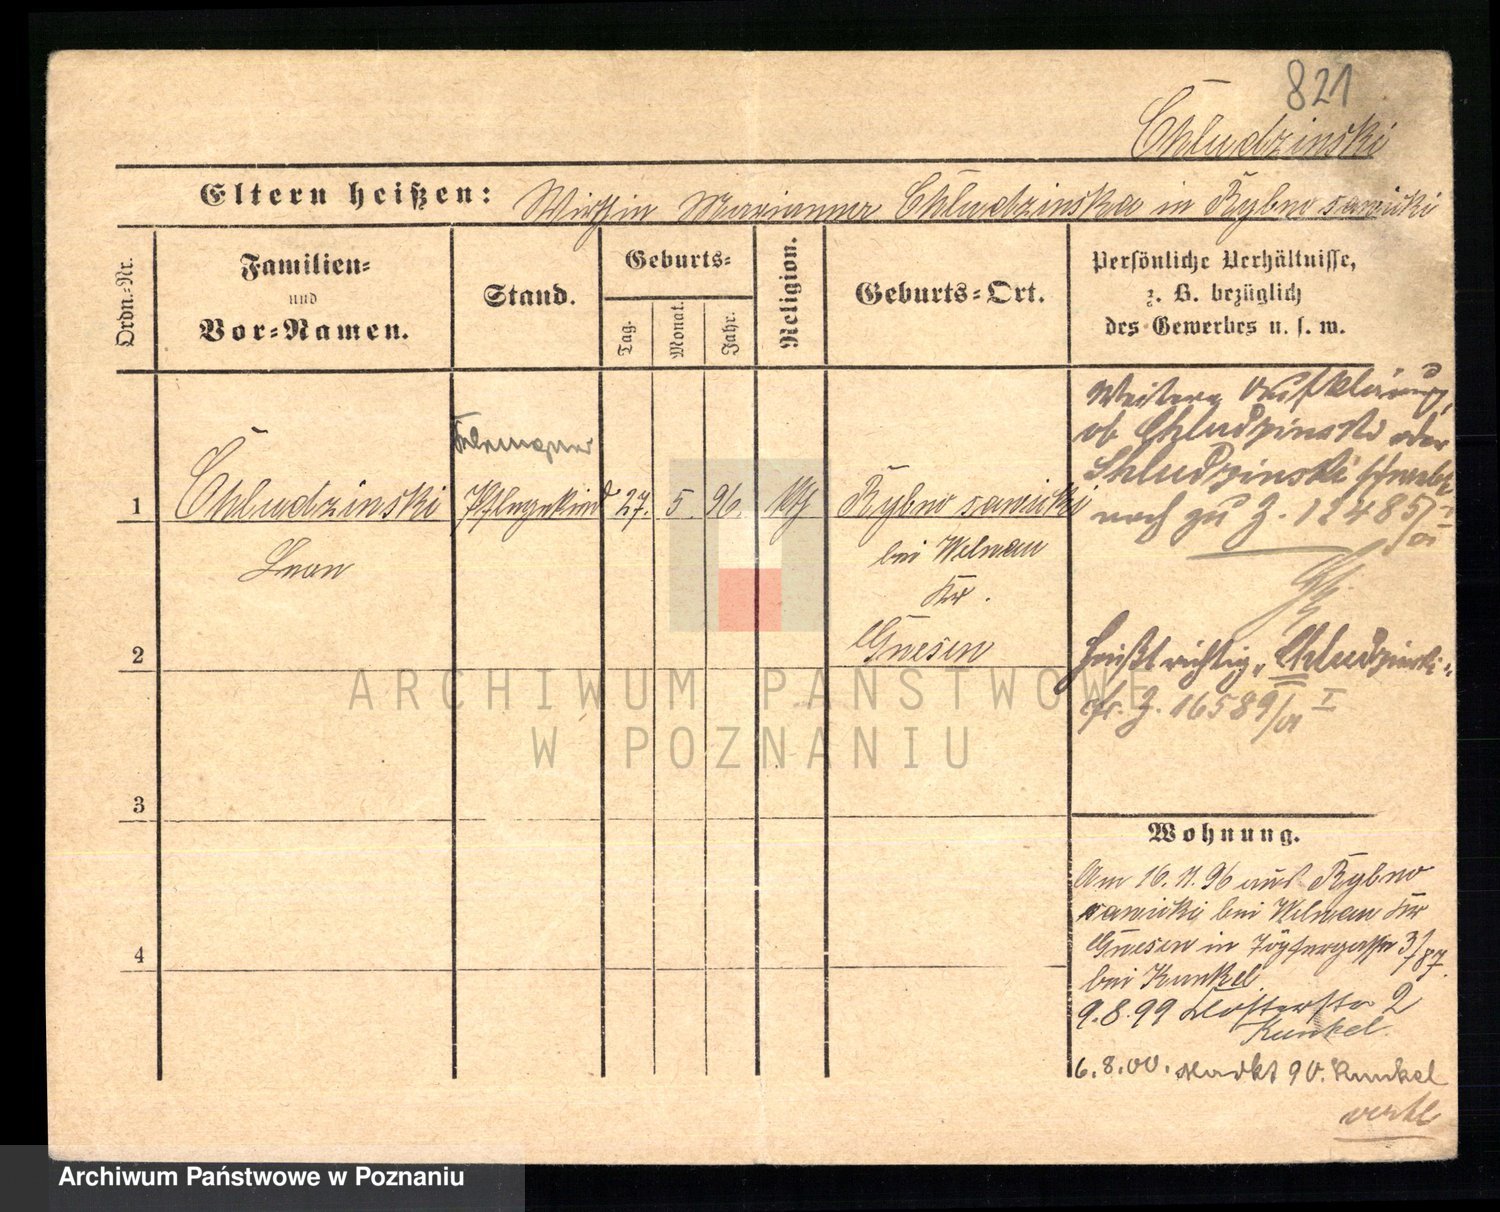 821
Chludzinski
Eltern heißen: Wirthin Marianna Chludzinska in Rybno sawicki
Ordn.-Nr.
Familien-
und
Vor-Namen.
Stand.
Geburts-
Tag.
Monat.
Jahr.
Religion.
Geburts-Ort.
Persönliche Verhältnisse,
z. B. bezüglich
des Gewerbes u. s. w.
1
Chludzinski
Leon
Pflegekind
27.
5.
96.
Rybno sawicki
bei Welnau
Kr.
Gnesen
2
3
4
Weitere Aufklärung,
ob Chludzinski oder
Schludzinski
noch zu J. 12485/01 I
heißt richtig „Chludzinski"
cfr. J. 16589/01 I
Wohnung.
Am 16.11.96 aus Rybno
sawicki bei Welnau Kr
Gnesen in Töpfergasse 3/87.
bei Kunkel
9.8.99 Klosterstr 2
Kunkel.
6.8.00. Markt 90. Kunkel
ARCHIWUM PAŃSTWOWE
W POZNANIU
Archiwum Państwowe w Poznaniu